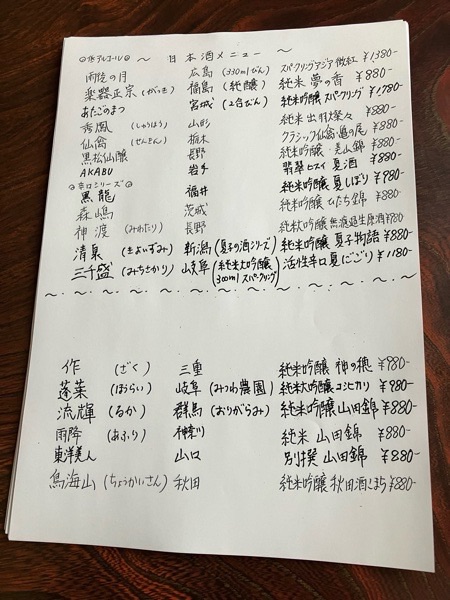 ◎低アルコール◎ ～ 日本酒メニュー ～
雨後の月 広島 (330mlびん) スパークリングアジア 微紅 ¥1380-
楽器正宗 (がっき) 福島 (純醸) 純米 夢の香 ¥880-
あたごのまつ 宮城 (2合びん) 純米吟醸 スパークリング ¥1780-
秀鳳 (しゅうほう) 山形 純米 出羽燦々 ¥880-
仙禽 (せんきん) 栃木 クラシック仙禽 亀の尾 ¥880-
黒松仙醸 長野 純米吟醸 美山錦 ¥880-
AKABU 岩手 翡翠ヒスイ 夏酒 ¥880-
◎辛口シリーズ◎
黒龍 福井 純米吟醸 夏しぼり ¥980-
森嶋 茨城 純米吟醸 ひたち錦 ¥880-
神渡 (みわたり) 長野 純米大吟醸 無濾過生原酒
清泉 (きよいずみ) 新潟 (夏子の酒シリーズ) 純米吟醸 夏子物語 ¥880-
三千盛 (みちさかり) 岐阜 (純米大吟醸 300ml スパークリング) 活性辛口 夏にごり ¥1180-
作 (ざく) 三重 純米吟醸 神の穂 ¥980-
蓬莱 (ほうらい) 岐阜 (みつわ農園) 純米大吟醸 コシヒカリ ¥980-
流輝 (るか) 群馬 (おりがらみ) 純米吟醸 山田錦 ¥880-
雨降 (あふり) 神奈川 純米 山田錦 ¥880-
東洋美人 山口 別撰 山田錦 ¥880-
鳥海山 (ちょうかいさん) 秋田 純米吟醸 秋田酒こまち ¥880-